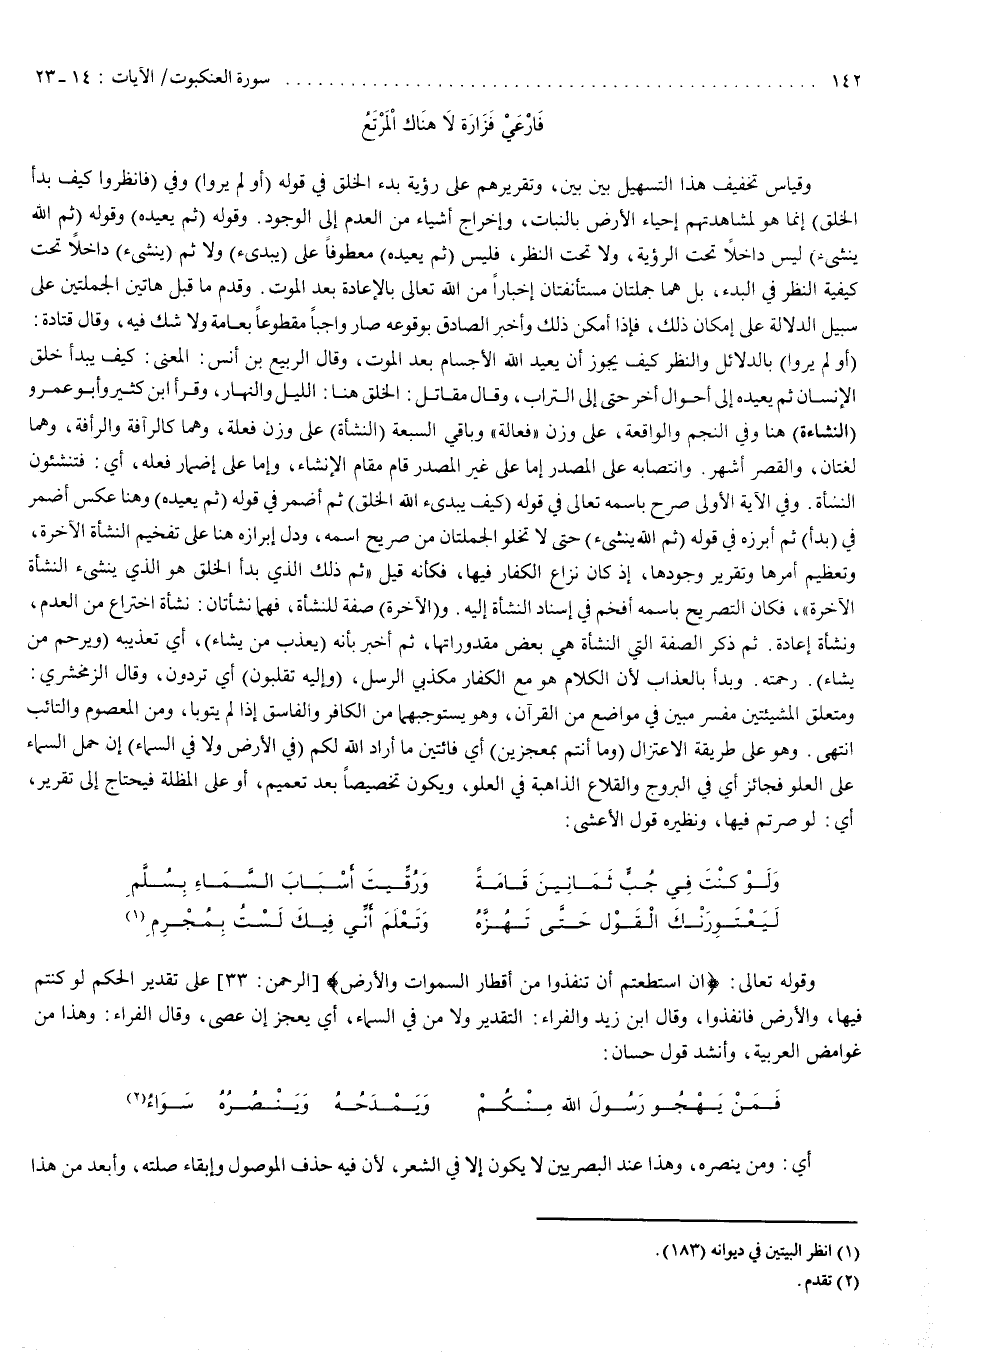 ١٤٢ . . . . . . . . . . . . . . . . . . . . . . . . . . . . . . . . . . . . . . . . . . . . . . . سورة العنكبوت/ الآيات : ١٤ ـ ٢٣
فَارْعَيْ فَزَارَة لَا هنَاك الْمَرْتَعُ
وقياس تخفيف هذا التسهيل بين بين، وتقريرهم على رؤية بدء الخلق في قوله (أو لم يروا) وفي (فانظروا كيف بدأ
الخلق) إنما هو لمشاهدتهم إحياء الأرض بالنبات، وإخراج أشياء من العدم إلى الوجود. وقوله (ثم يعيده) وقوله (ثم الله
ينشىء) ليس داخلاً تحت الرؤية، ولا تحت النظر، فليس (ثم يعيده) معطوفاً على (يبدىء) ولا ثم (ينشىء) داخلاً تحت
كيفية النظر في البدء، بل هما جملتان مستأنفتان إخباراً من الله تعالى بالإعادة بعد الموت. وقدم ما قبل هاتين الجملتين على
سبيل الدلالة على إمكان ذلك، فإذا أمكن ذلك وأخبر الصادق بوقوعه صار واجباً مقطوعاً بعامة ولا شك فيه، وقال قتادة :
(أو لم يروا) بالدلائل والنظر كيف يجوز أن يعيد الله الأجسام بعد الموت، وقال الربيع بن أنس : المعنى : كيف يبدأ خلق
الإنسان ثم يعيده إلى أحوال أخر حتى إلى التراب، وقال مقاتل : الخلق هنا : الليل والنهار، وقرأ ابن كثير وأبو عمرو
(النشاءة) هنا وفي النجم والواقعة، على وزن «فعالة» وباقي السبعة (النشأة) على وزن فعلة، وهما كالرآفة والرأفة، وهما
لغتان، والقصر أشهر. وانتصابه على المصدر إما على غير المصدر قام مقام الإنشاء، وإما على إضمار فعله، أي : فتنشئون
النشأة. وفي الآية الأولى صرح باسمه تعالى في قوله (كيف يبدىء الله الخلق) ثم أضمر في قوله (ثم يعيده) وهنا عكس أضمر
في (بدأ) ثم أبرزه في قوله (ثم الله ينشىء) حتى لا تخلو الجملتان من صريح اسمه، ودل إبرازه هنا على تفخيم النشأة الآخرة،
وتعظيم أمرها وتقرير وجودها، إذ كان نزاع الكفار فيها، فكأنه قيل «ثم ذلك الذي بدأ الخلق هو الذي ينشىء النشأة
الآخرة»، فكان التصريح باسمه أفخم في إسناد النشأة إليه. و(الآخرة) صفة للنشأة، فهما نشأتان : نشأة اختراع من العدم،
ونشأة إعادة. ثم ذكر الصفة التي النشأة هي بعض مقدوراتها، ثم أخبر بأنه (يعذب من يشاء)، أي تعذيبه (ويرحم من
يشاء). رحمته. وبدأ بالعذاب لأن الكلام هو مع الكفار مكذبي الرسل، (وإليه تقلبون) أي تردون، وقال الزمخشري :
ومتعلق المشيئتين مفسر مبين في مواضع من القرآن، وهو يستوجبهما من الكافر والفاسق إذا لم يتوبا، ومن المعصوم والتائب
انتهى. وهو على طريقة الاعتزال (وما أنتم بمعجزين) أي فائتين ما أراد الله لكم (في الأرض ولا في السماء) إن حمل السماء
على العلو فجائز أي في البروج والقلاع الذاهبة في العلو، ويكون تخصيصاً بعد تعميم، أو على المظلة فيحتاج إلى تقرير،
أي : لو صرتم فيها، ونظيره قول الأعشى :
وَلَـوْ كُنْتَ فِي جُبٍّ ثَمَانِينَ قَامَةً وَرُقِّيتَ أَسْبَابَ السَّمَاءِ بِسُلَّمِ
لَيَعْتَورَنْكَ الْقَوْل حَتَّى تَهُزَّهُ وَتَعْلَمَ أَنِّي فِيكَ لَسْتُ بِمُجْرِمِ(١)
وقوله تعالى : ﴿ان استطعتم أن تنفذوا من أقطار السموات والأرض﴾ [الرحمن : ٣٣] على تقدير الحكم لو كنتم
فيها، والأرض فانفذوا، وقال ابن زيد والفراء : التقدير ولا من في السماء، أي يعجز إن عصى، وقال الفراء : وهذا من
غوامض العربية، وأنشد قول حسان :
فَمَنْ يَهْجُو رَسُولَ الله مِنْكُمْ وَيَمْدَحُهُ وَيَنْصُرُهُ سَوَاءُ(٢)
أي : ومن ينصره، وهذا عند البصريين لا يكون إلا في الشعر، لأن فيه حذف الموصول وإبقاء صلته، وأبعد من هذا
(١) انظر البيتين في ديوانه (١٨٣).
(٢) تقدم.